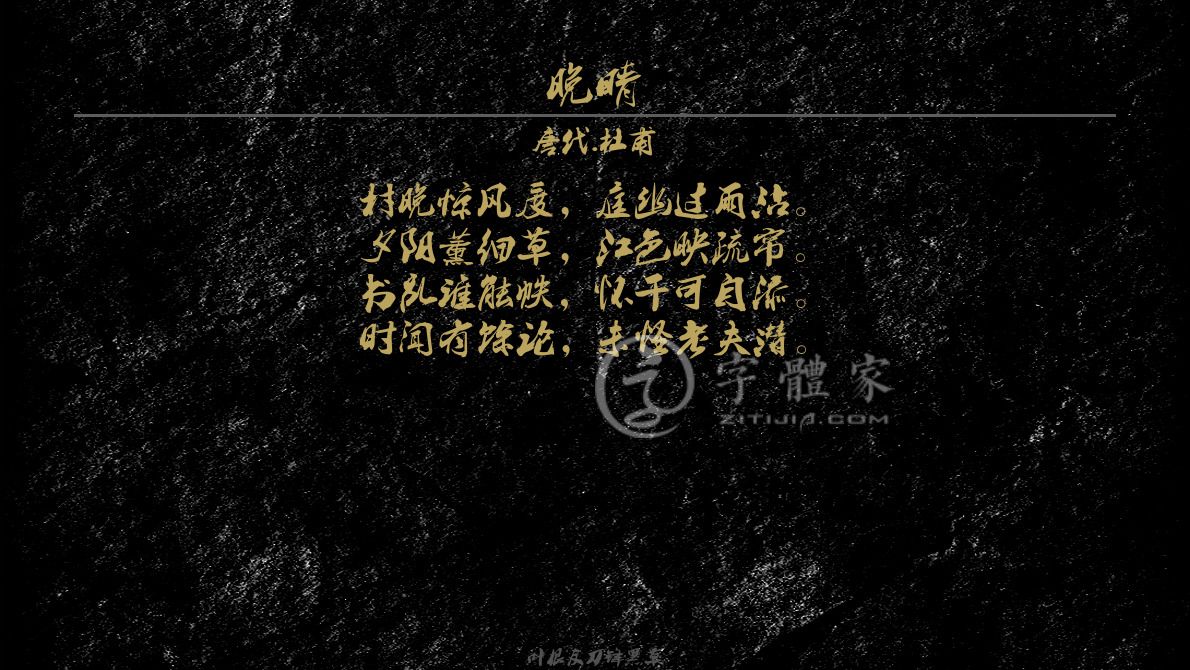 晚晴
唐代:杜甫
村晚惊风度，庭幽过雨沾。
夕阳薰细草，江色映疏帘。
书乱谁能帙，怀干可自添。
时闻有馀论，未怪老夫潜。
字體家
ZITIJIA.COM
叶根友刀锋黑草